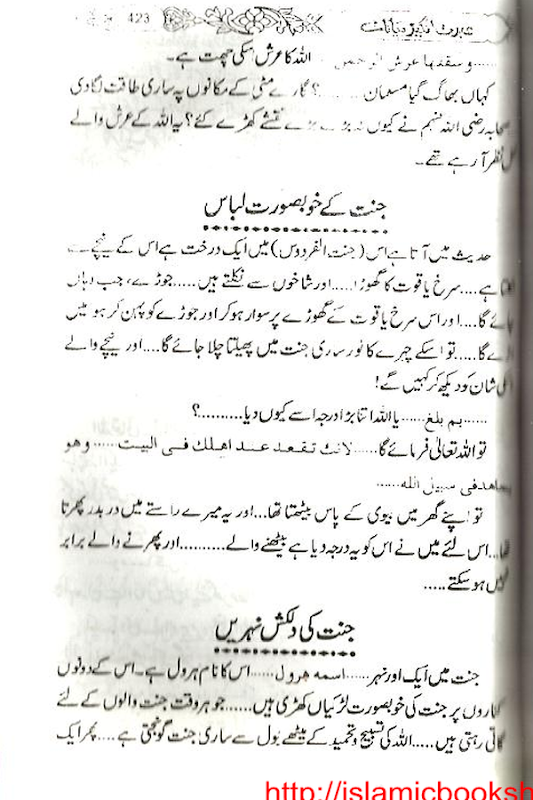 423 عبرت انگیز بیانات
......وسقفها عرش الرحمن...... اللہ کا عرش اسکی چھت ہے۔
کہاں بھاگ گیا مسلمان............؟ گارے مٹی کے مکانوں پہ ساری طاقت لگا دی
صحابہ رضی اللہ عنہم نے کیوں نہ بڑے بڑے نقشے کھڑے کئے؟ یہ اللہ کے عرش والے
نظر آ رہے تھے۔
جنت کے خوبصورت لباس
حدیث میں آتا ہے اس (جنت الفردوس) میں ایک درخت ہے اس کے نیچے سے
ہے....سرخ یاقوت کا گھوڑا.....اور شاخوں سے نکلتے ہیں.....جوڑے، جب وہاں
جائے گا....اور اس سرخ یاقوت کے گھوڑے پر سوار ہو کر اور جوڑے کو پہن کر ہو میں
گا.....تو اسکے چہرے کا نور ساری جنت میں پھیلتا چلا جائے گا....اور نیچے والے
اسکی شان کو دیکھ کر کہیں گے!
......بم بلغ......یا اللہ اتنا بڑا درجہ اسے کیوں دیا..........؟
تو اللہ تعالیٰ فرمائے گا......لانك تقعد عند اهلك فى البيت......وهو
يجاهد فى سبيل الله......
تو اپنے گھر میں بیوی کے پاس بیٹھتا تھا...اور یہ میرے راستے میں در بدر پھرتا
تھا...اس لئے میں نے اس کو یہ درجہ دیا ہے بیٹھنے والے..........اور پھرنے والے برابر
نہیں ہو سکتے.....
جنت کی دلکش نہریں
جنت میں ایک اور نہر......اسمه هرول......اس کا نام ہرول ہے۔ اس کے دونوں
کناروں پر جنت کی خوبصورت لڑکیاں کھڑی ہیں.......جو ہر وقت جنت والوں کے لئے
گاتی رہتی ہیں.....اللہ کی تسبیح و تحمید کے میٹھے بول سے ساری جنت گونجتی ہے....پھر ایک
http://islamicbooksh